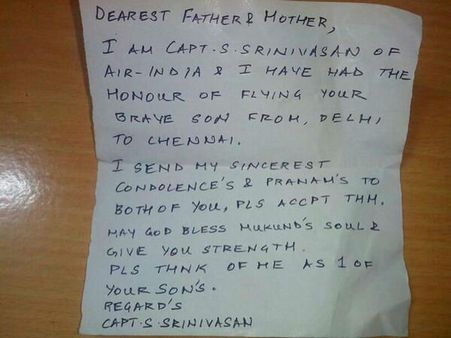 DEAREST FATHER & MOTHER,
I AM CAPT.S.SRINIVASAN OF
AIR-INDIA & I HAVE HAD THE
HONOUR OF FLYING YOUR
BRAVE SON FROM, DELHI
TO CHENNAI.
I SEND MY SINCEREST
CONDOLENCE'S & PRANAM'S TO
BOTH OF YOU, PLS ACCPT THM.
MAY GOD BLESS MUKUND'S SOUL &
GIVE YOU STRENGTH.
PLS THNK OF ME AS 1 OF
YOUR SON'S.
REGARD'S
CAPT.S.SRINIVASAN